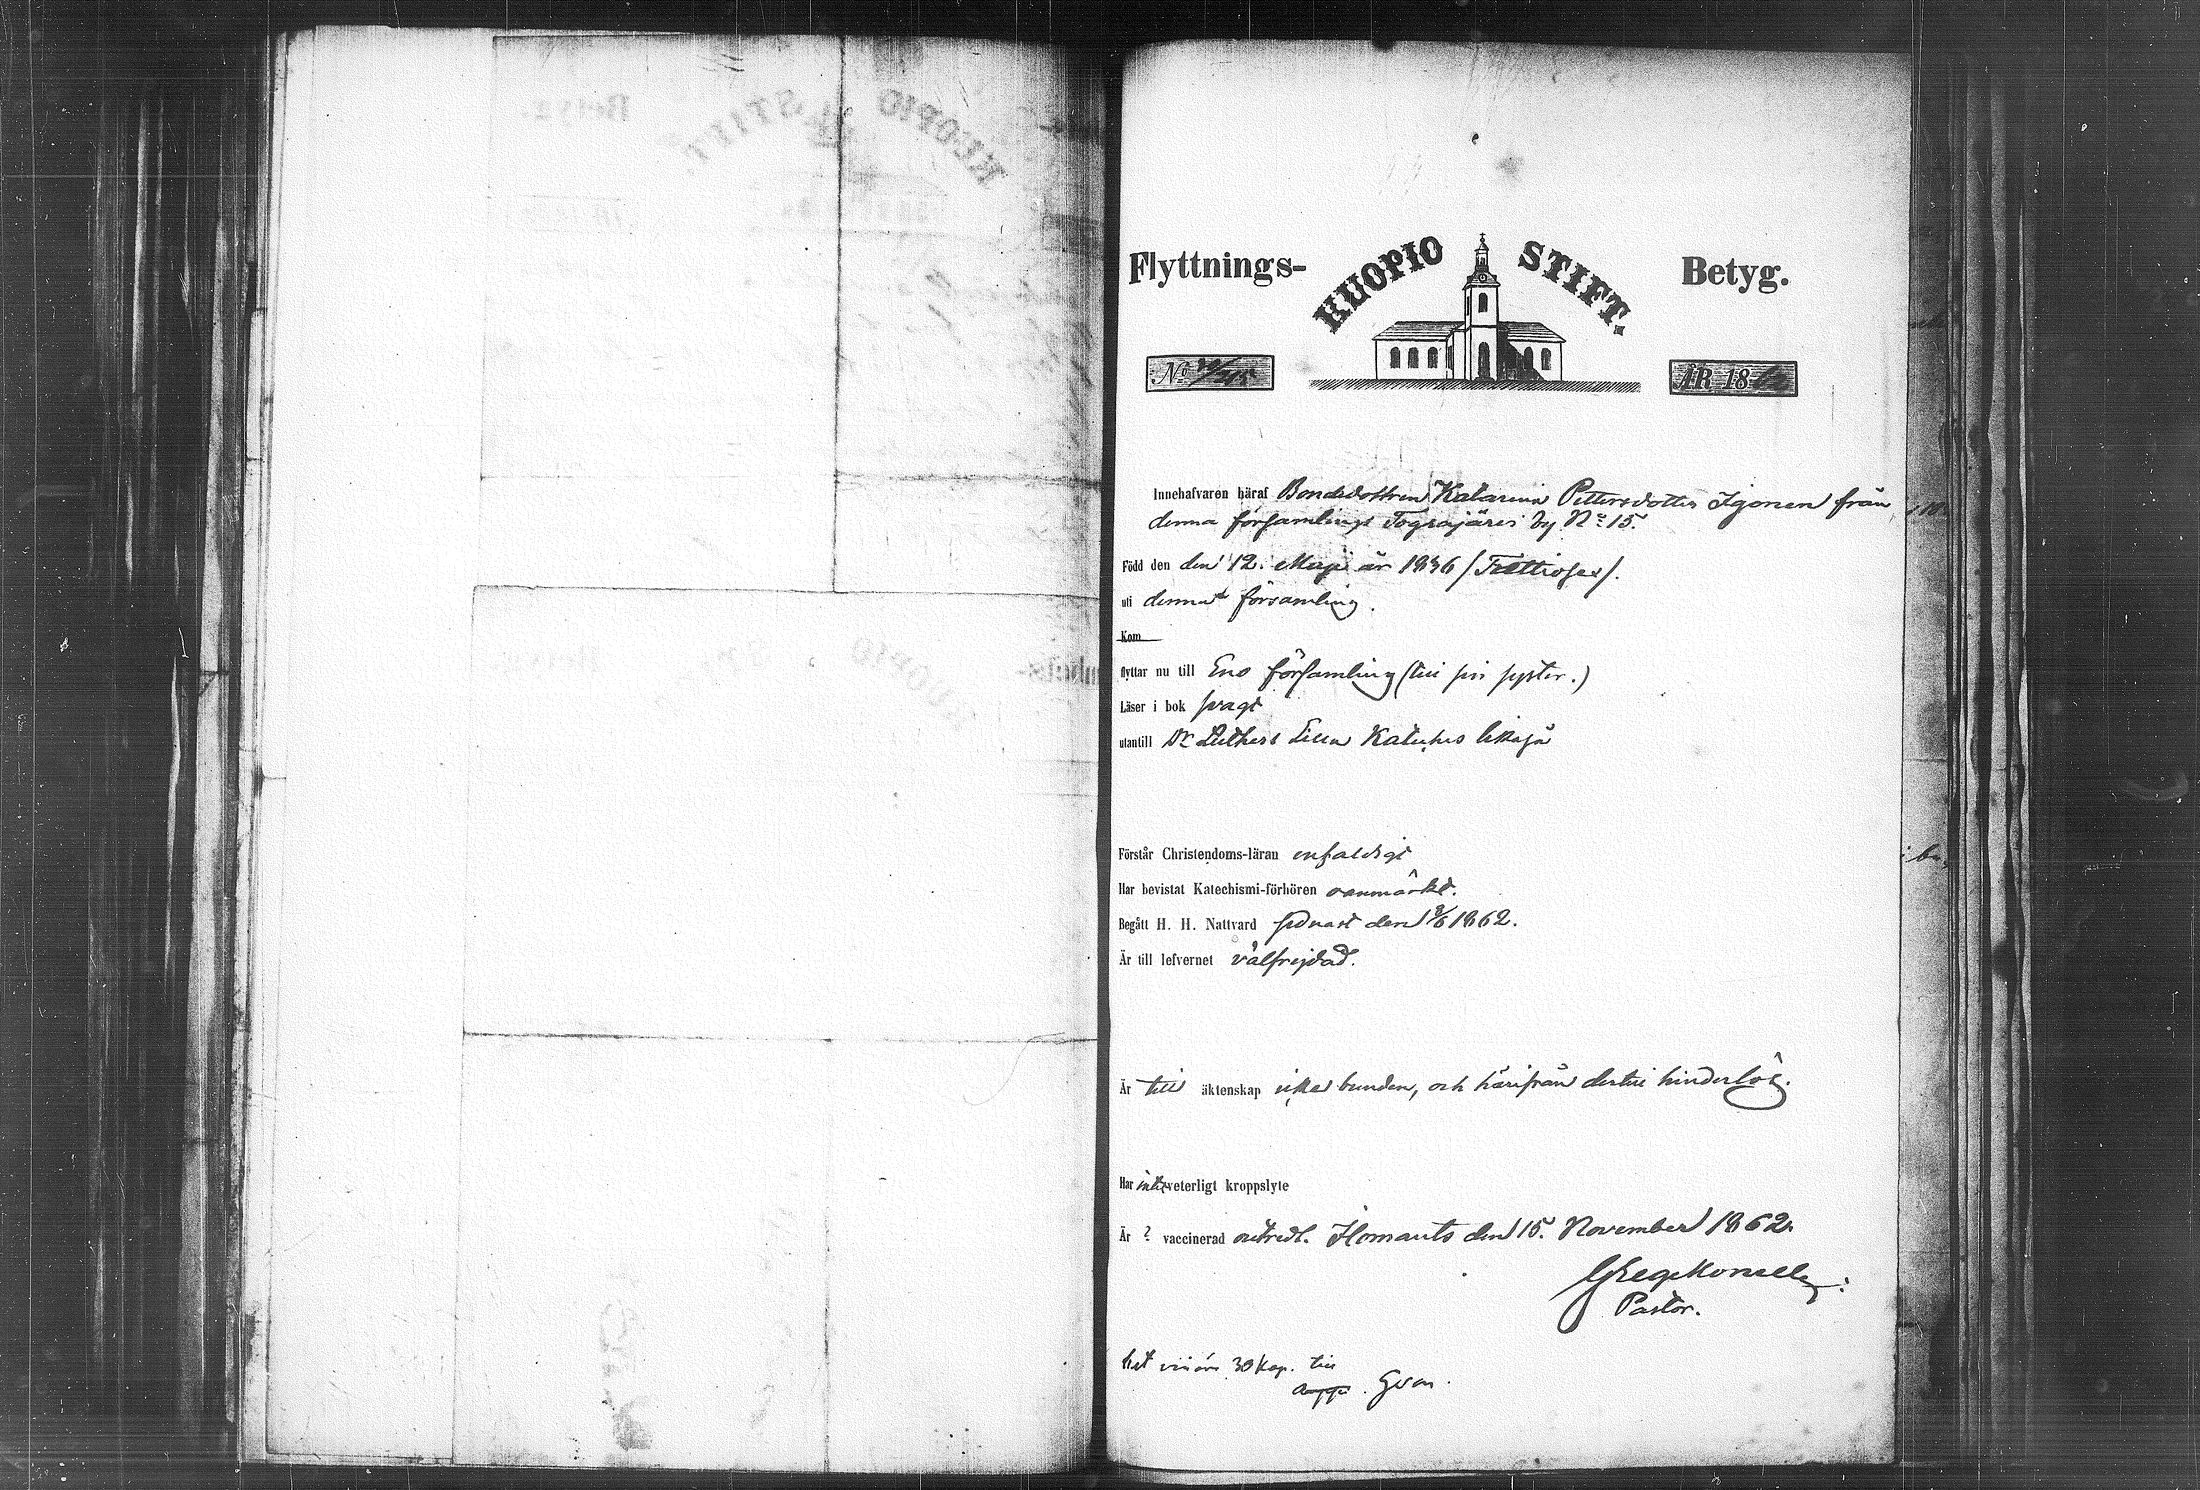 Flyttnings- KUOPIO STIFT. Betyg.
No 215 ÅR 1862
Innehafvaren häraf Bondedottren Katarina Pettersdotter Igonen från
denna församlings Tograjärvi by No 15.
Född den den 12. Maji år 1836 /Trettiosex/.
uti denna församling.
Kom
flyttar nu till Eno församling (till sin syster.)
Läser i bok svagt
utantill Dr Luthers Lilla Kateches likaså
Förstår Christendoms-läran enfaldigt
Har bevistat Katechismi-förhören oanmärkt.
Begått H. H. Nattvard sednast den 9/6 1862.
Är till lefvernet välfrejdad.
Är till äktenskap icke bunden, och härifrån dertill hinderlös.
Har inte veterligt kroppslyte
Är ? vaccinerad outredt. Ilomants den 15. November 1862.
Pastor.
30 kop. till